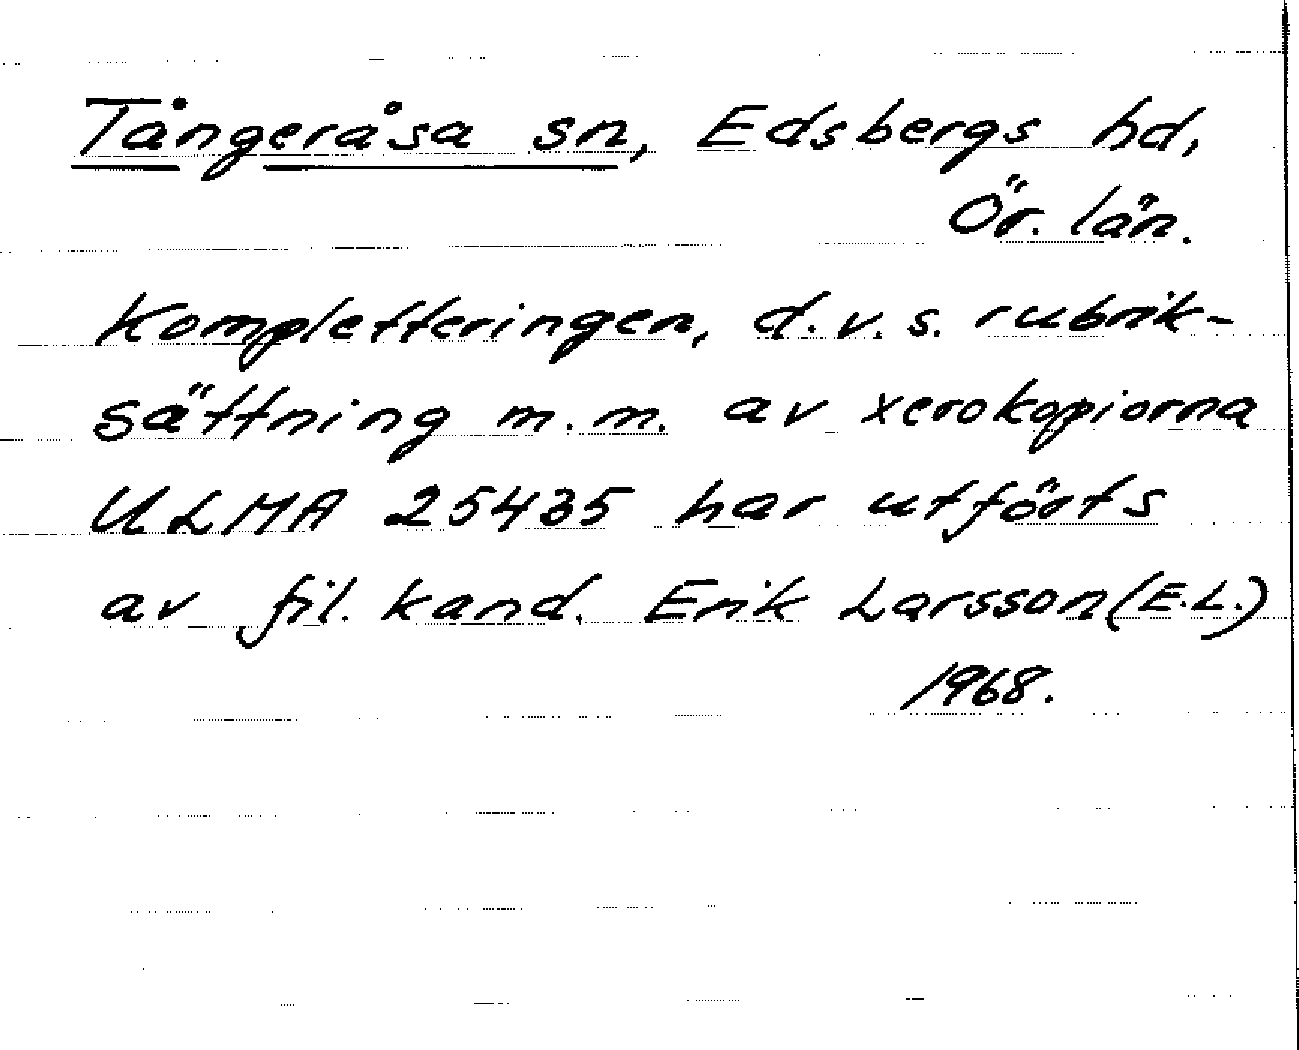 Tångeråsa sn, Edsbergs hd,
Ör. län.
Kompletteringen, d.v.s. rubrik-
sättning m.m. av xerokopiorna
ULMA 25435 har utförts
av fil. kand. Erik Larsson (E.L.)
1968.